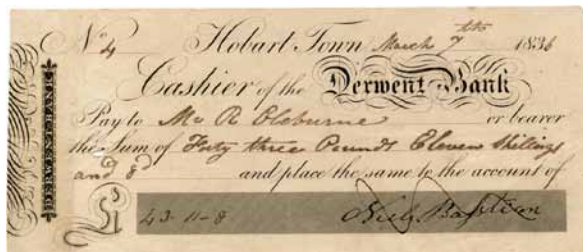 No 4 Hobart Town March 7th 1836
Cashier of the Derwent Bank
Pay to Mr R Osburne or bearer
the Sum of Forty three Pounds Eleven Shillings
and 8d and place the same to the account of
£ 43-11-8
DERWENT BANK